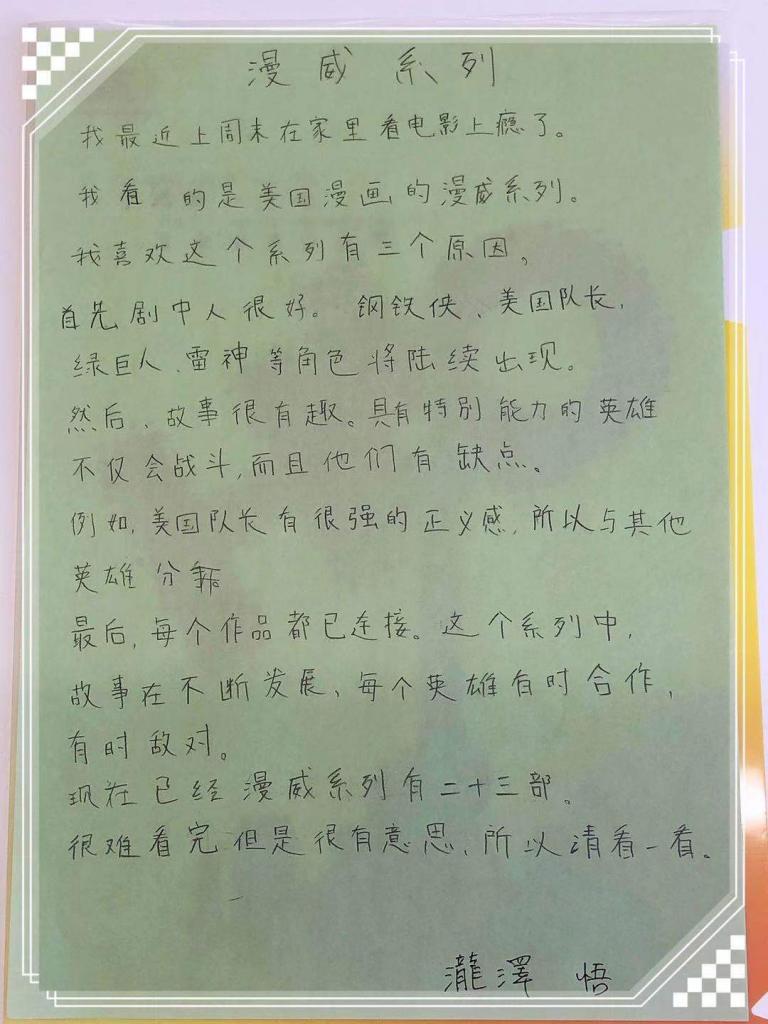 漫威系列
我最近上周末在家里看电影上瘾了。
我看 的是美国漫画的漫威系列。
我喜欢这个系列有三个原因。
首先剧中人很好。 钢铁侠、美国队长,
绿巨人、雷神等角色将陆续出现。
然后、故事很有趣。具有特别能力的英雄
不仅会战斗,而且他们有缺点。
例如,美国队长有很强的正义感,所以与其他
英雄分
最后,每个作品都已连接。这个系列中,
故事在不断发展、每个英雄有时合作,
有时敌对。
现在已经漫威系列有二十三部。
很难看完但是很有意思,所以请看一看。
瀧澤 悟